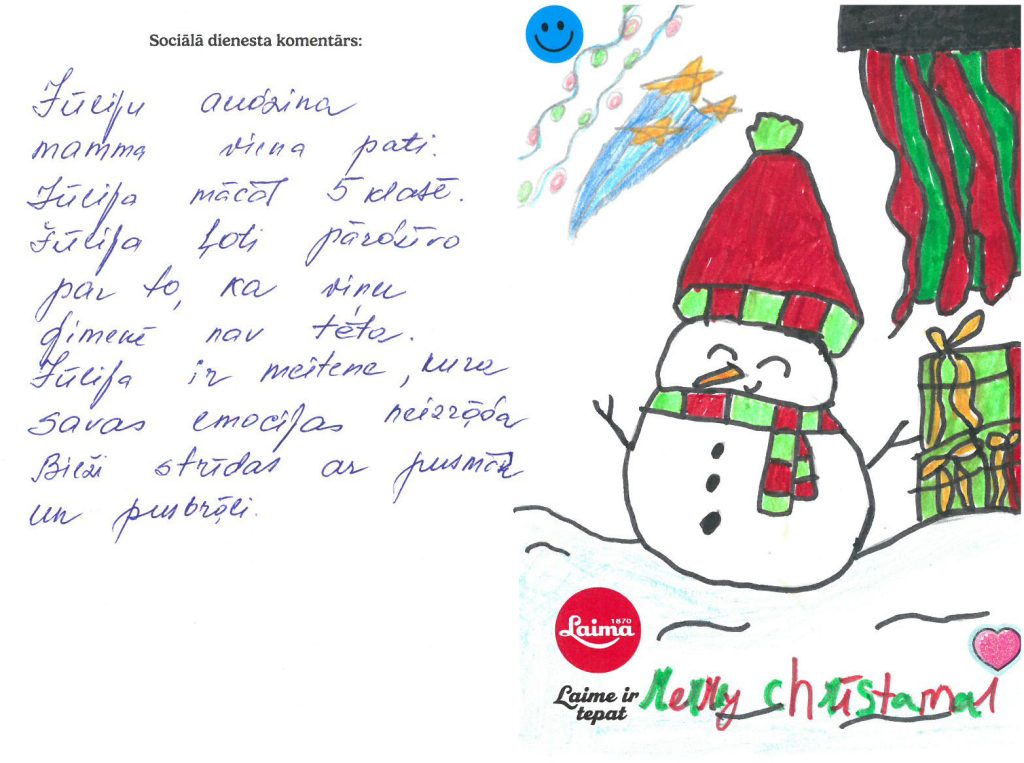 Sociālā dienesta komentārs:
Jūliju audzina
mamma viena pati.
Jūlija mācās 5 klasē.
Jūlija ļoti pārdzīvo
par to, ka viņu
ģimenē nav tēta.
Jūlija ir meitene, kura
savas emocijas neizrāda
Bieži strīdas ar pusmās
un pusbrāli.
1870
Laima
Laime ir
tepat
Merry christamal